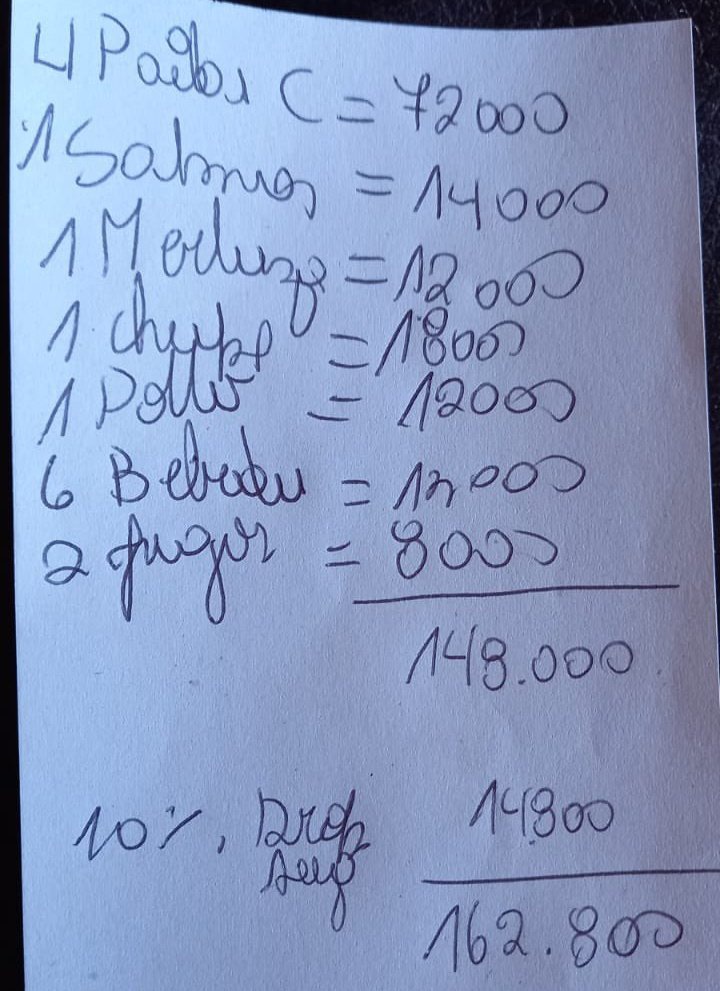 4 Pailas C = 72000
1 Salmon = 14000
1 Merluza = 12000
1 chupe = 18000
1 Pollo = 12000
6 Bebidas = 12000
2 Jugos = 8000
148.000
10%. Prop 14800
162.800